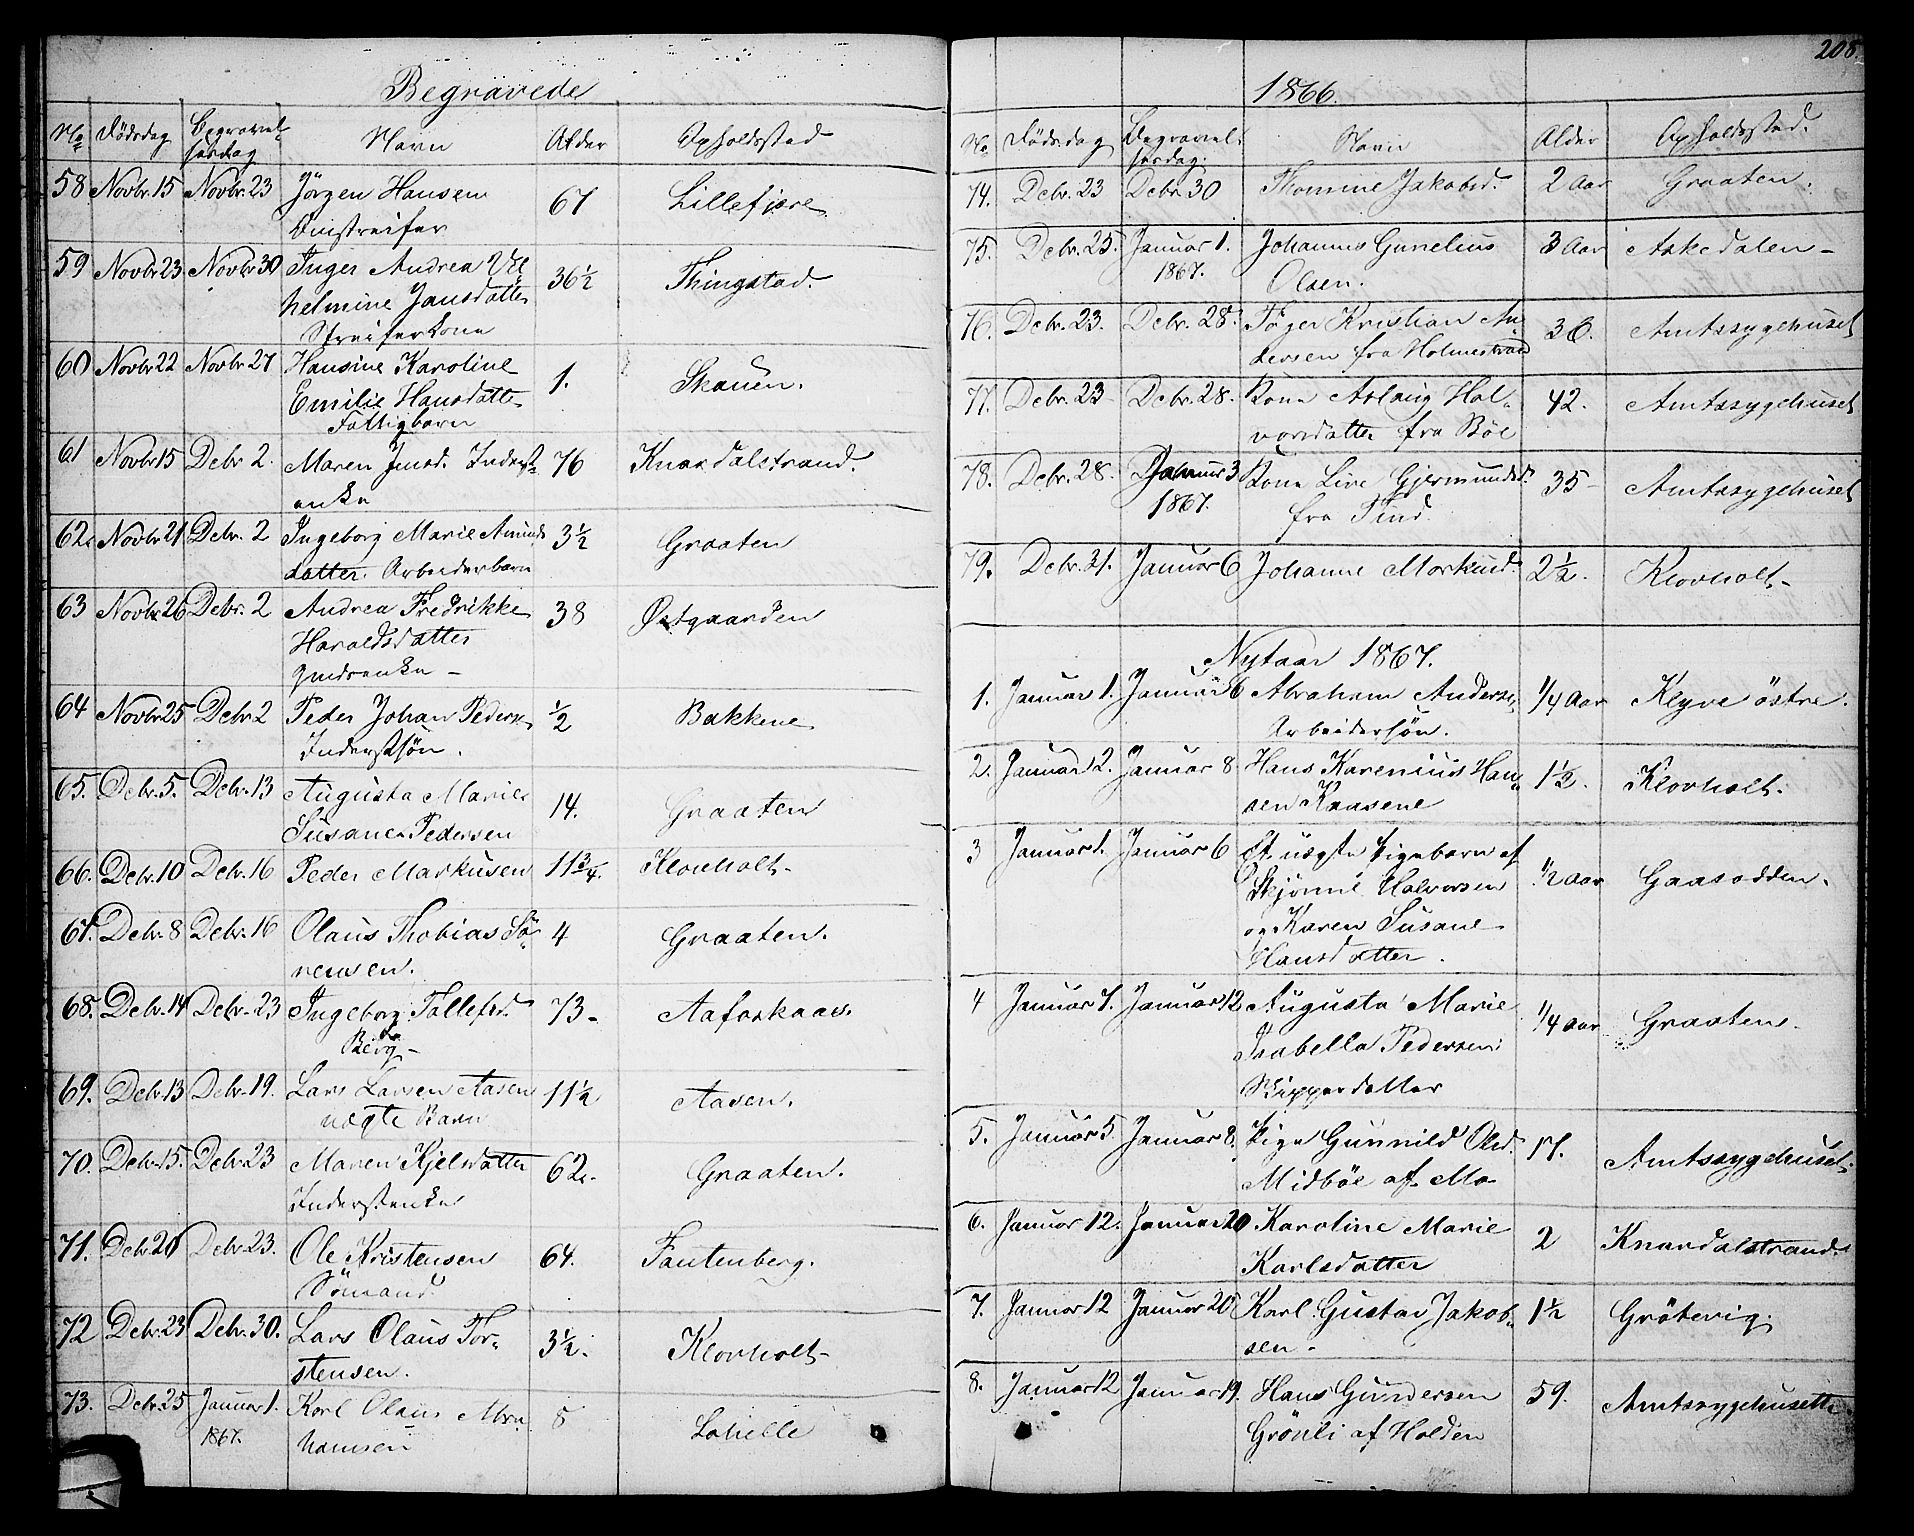 Begravede
No Dødsdag Begravelsesdag Navn Alder Opholdssted
58 Novbr. 15 Novbr. 23 Jörgen Hansen 67 Lillefjære
59 Novbr. 23 Novbr. 30 Inger Andrea Vil 36½ Thingstad.
helmine Jansdatter
60 Novbr 22 Novbr. 27 Hansine Karoline 1. Skauen.
Emilie Hansdatter
Fattigbarn
61 Novbr. 15 Debr 2. Maren Jensd. Inderst 76 Knardalstrand.
enke
62. Novbr. 21 Debr. 2 Ingeborg Marie Amunds 3½ Graaten
datter. Arbeiderbarn
63 Novbr. 26 Debr. 2 Andrea Fredrikke 38 Østgaarden
Haroldsdatter
64 Novbr. 25 Debr. 2 Peder Johan Peders. ½ Bakkene
Inderstsön.
65. Debr. 5. Debr. 13 Augusta Marie 14. Graaten
Susane Pedersen
66. Debr. 10 Debr. 16 Peder Markusen 11¾. Klovholt-
67. Debr. 8 Debr. 16 Olaus Thobias Sö 4 Graaten.
rensen.
68. Debr. 14 Debr. 23 Ingeborg Tollefsd. 73- Aafoskaas.
Berg-
69. Debr. 13 Debr. 19. Lars Larsen Aasen 11½ Aasen.
uægte Barn
70. Debr. 15. Debr. 23 Maren Kjelsdatter 62. Graaten.
Inderstenke
71. Debr. 20 Debr. 23. Ole Kristensen 64. Fautenberg.
Sömand
72 Debr. 23 Debr. 30. Lars Olaus Tor- 3½. Klovholt-
stensen.
73. Debr. 25 Januar 1. Karl Olaus 5
1867.
208.
1866.
No Dødsdag Begravelsesdag. Navn Alder Opholdssted.
74. Debr. 23 Debr. 30 Thomine Jakobsd. 2 Aar Graaten.
75. Debr. 25. Januar 1. Johannes Gunelius 3 Aar Askedalen-
1867. Olsen.
76. Debr. 23. Debr. 28. Töger Kristian An 36. Amtssygehuset
dersen fra Holmestrand
77. Debr. 23 Debr. 28. Kone Aslaug Hal- 42. Amtssygehuset
vorsdatter fra Böe
78. Debr. 28. Januar 3 Kone Live Gjermundsd. 35- Amtssygehuset
1867. fra Tind.
79. Debr. 31. Januar 6 Johanne Markusd. 2½. Klovholt-
Nytaar 1867.
1. Januar 1. Januar 6 Abraham Anders. ¼ Aar Klyve östre.
Arbeidersön.
2. Januar 2. Januar 8 Hans Karenius Han 1½. Klovholt.
sen Kaasene
3 Januar 1. Januar 6 Et uægte Pigebarn af ½ Aar Gaasodden.
Halvorsen
og Karen Susane
Hansdatter.
4 Januar 7. Januar 12 Augusta Marie ¼ Aar Graaten.
Isabella Pedersen
Skipperdatter
5. Januar 5 Januar 8. Pige Gunnild Olsd. 17. Amtssygehuset.
Midböe af Mo
6. Januar 12. Januar 20 Karoline Marie 2 Knardalstrand.
Karlsdatter
7. Januar 12 Januar 20 Karl Gustav Jakob- 1½ Gråtevig.
sen.
8. Januar 12 Januar 19. Hans Gundersen 59. Amtssygehusett
Grönli af Holden